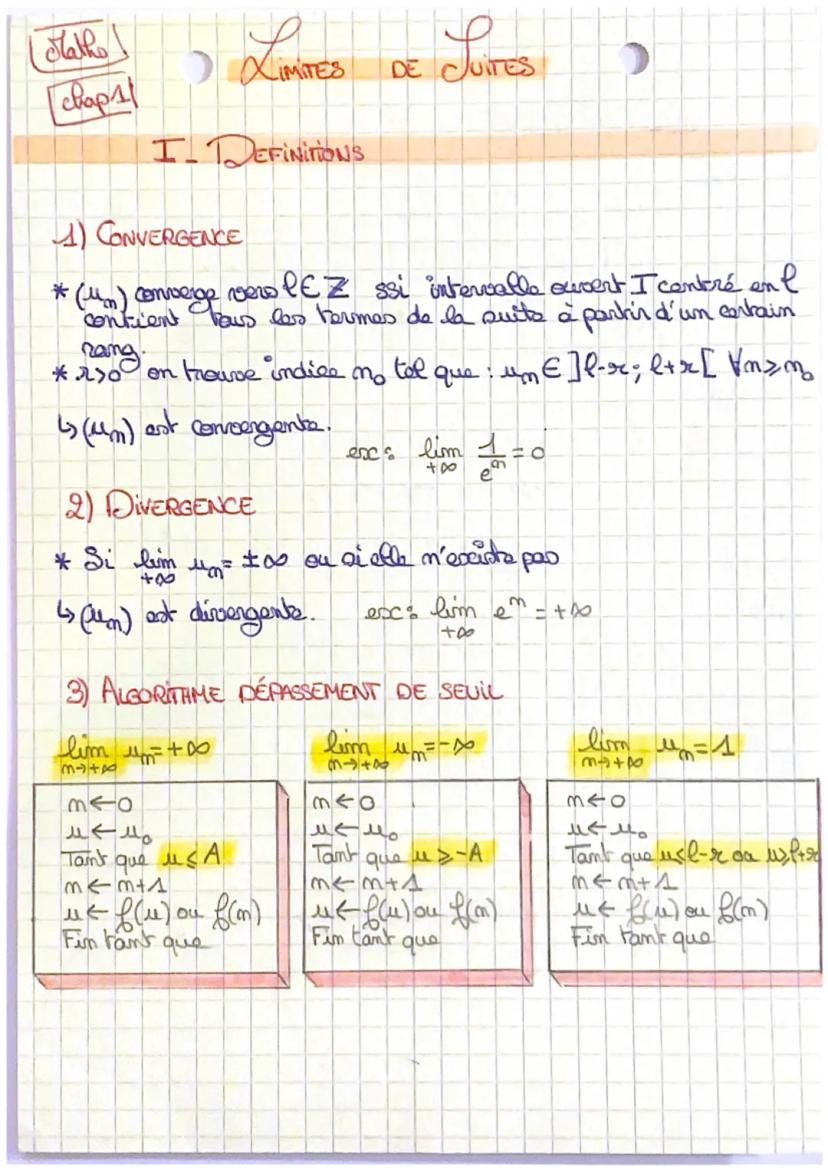 Maths
chap 1
LIMITES DE SUITES
I - DEFINITIONS
1) CONVERGENCE
* (un) converge vers l ∈ Z ssi intervalle ouvert I centré en l
contient tous les termes de la suite à partir d'un certain
rang.
* r>0 on trouve indice n₀ tel que : un ∈ ]l-r ; l+r[ ∀n≥n₀
↳ (un) est convergente.
ex : lim 1/eⁿ = 0
+∞
2) DIVERGENCE
* Si lim un = ±∞ ou si elle n'existe pas
+∞
↳ (un) est divergente. ex : lim eⁿ = +∞
+∞
3) ALGORITHME DÉPASSEMENT DE SEUIL
lim un = +∞
n→+∞
n ← 0
u ← u₀
Tant que u ≤ A
n ← n+1
u ← f(u) ou f(n)
Fin tant que
lim un = -∞
n→+∞
n ← 0
u ← u₀
Tant que u ≥ -A
n ← n+1
u ← f(u) ou f(n)
Fin tant que
lim un = 1
n→+∞
n ← 0
u ← u₀
Tant que u≤l-r ou u≥l+r
n ← n+1
u ← f(u) ou f(n)
Fin tant que